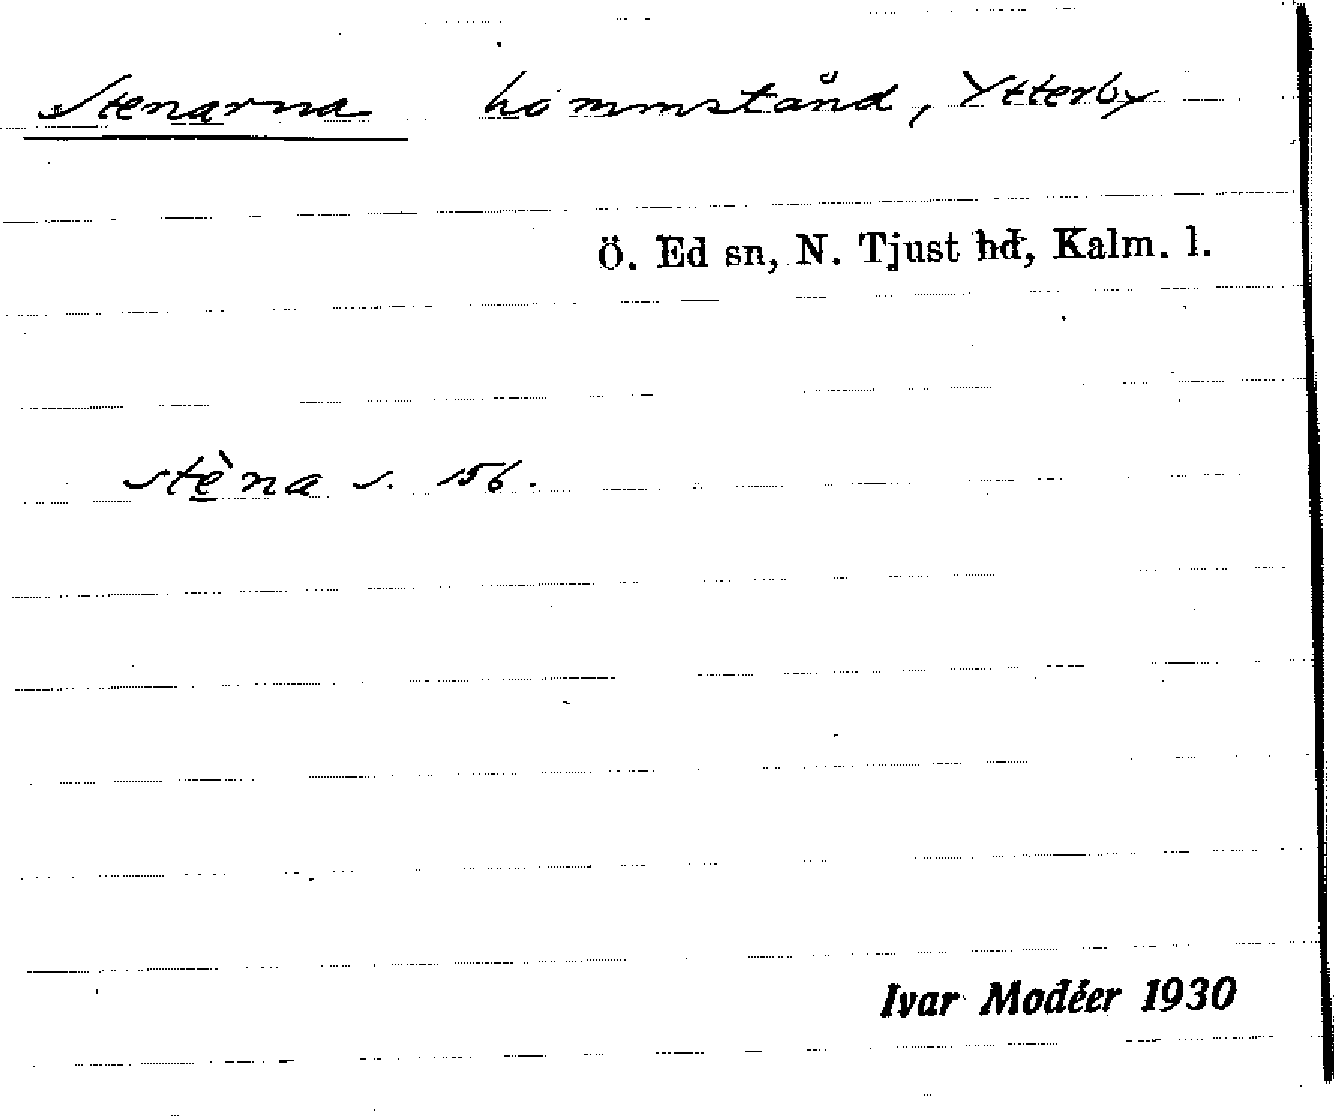 Stenarna hommstånd, Ytterby
Ö. Ed sn, N. Tjust hd, Kalm. l.
stèna s. 156.
Ivar Modéer 1930